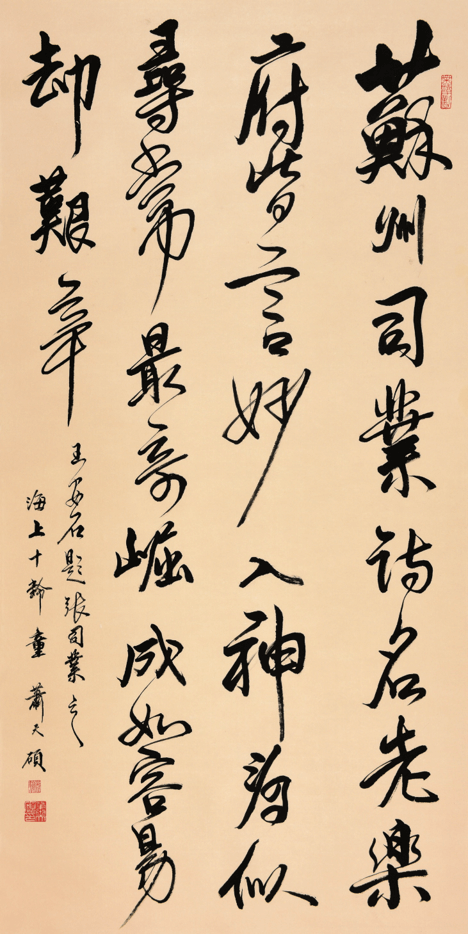 蘇州司業詩名老樂
府皆言妙入神看似
尋常最奇崛成如容易
却艱辛
王安石題張司業
海上十齡童蕭天碩